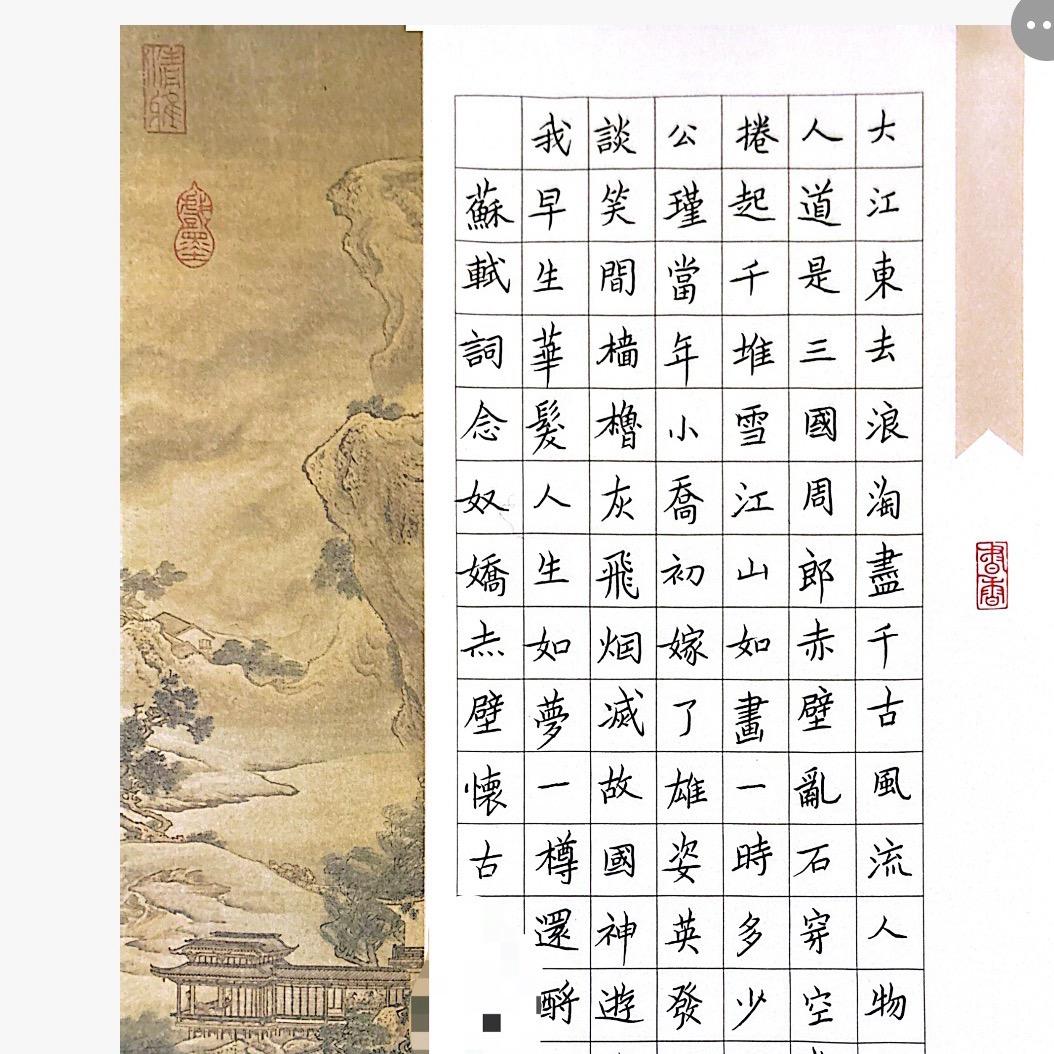 大江東去浪淘盡千古風流人物
人道是三國周郎赤壁亂石穿空
捲起千堆雪江山如畫一時多少
公瑾當年小喬初嫁了雄姿英發
談笑間檣櫓灰飛烟滅故國神遊
我早生華髮人生如夢一樽還酹
蘇軾詞念奴嬌赤壁懷古
書香
清雅
戲墨